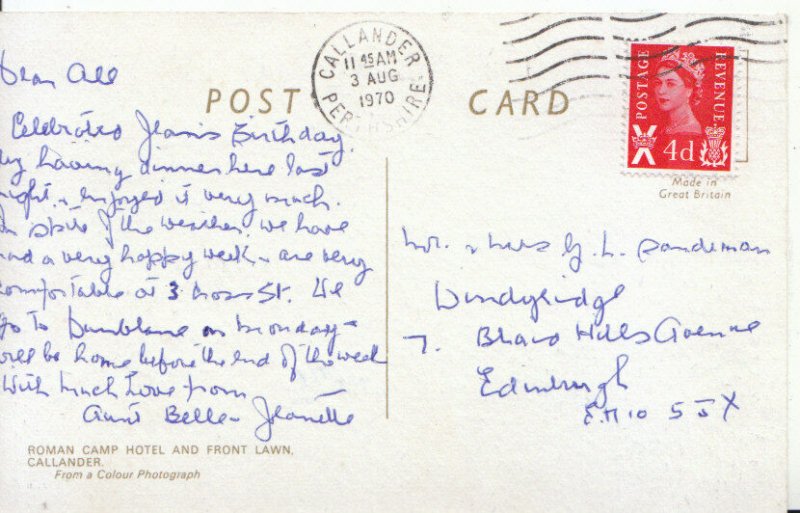 POST CARD
CALLANDER
11 45 AM
3 AUG
1970
PERTHSHIRE
POSTAGE REVENUE
4d
Made in
Great Britain
Dear All
Celebrated Jean's Birthday
by having dinner here last
night & enjoyed it very much.
In spite of the weather, we have
had a very happy week & are very
comfortable at 3 Cross St. We
go to Dunblane on Monday –
will be home before the end of the week
With much love from
Aunt Belle & Jeanette
Mr. & Mrs G. L. Sandeman
Windyridge
7. Braid Hills Avenue
Edinburgh
EH10
ROMAN CAMP HOTEL AND FRONT LAWN,
CALLANDER.
From a Colour Photograph